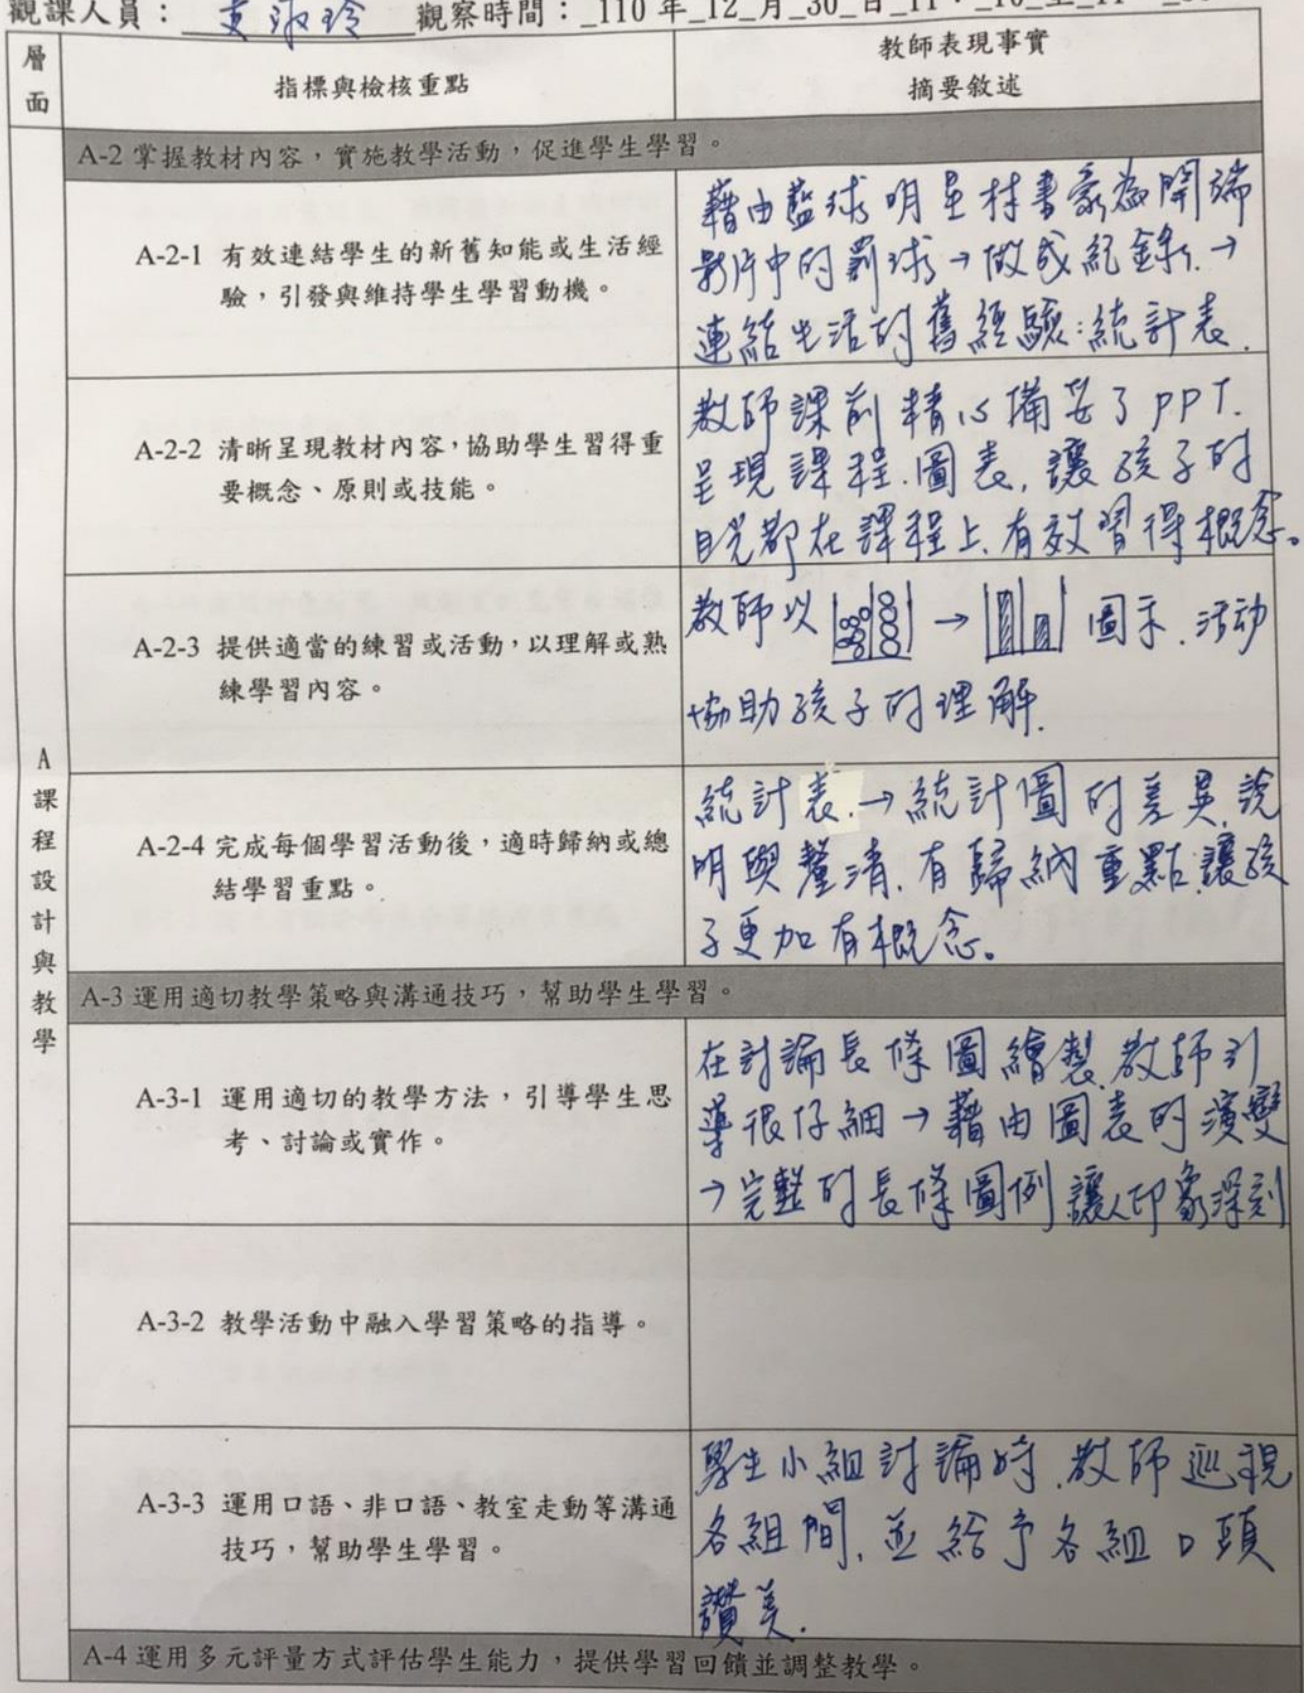 觀課人員：淑玲 觀察時間：_110 年_12_月_30_日_11：_10_至_11
層面
指標與檢核重點
教師表現事實
摘要敘述
A 課程設計與教學
A-2 掌握教材內容，實施教學活動，促進學生學習。
A-2-1 有效連結學生的新舊知能或生活經
驗，引發與維持學生學習動機。
藉由籃球明星林書豪為開端
影片中的罰球→做成紀錄.→
連結生活的舊經驗:統計表.
A-2-2 清晰呈現教材內容，協助學生習得重
要概念、原則或技能。
教師課前精心備妥了PPT.
呈現課程.圖表,讓孩子的
目光都在課程上.有效習得概念。
A-2-3 提供適當的練習或活動，以理解或熟
練學習內容。
教師以 → 圖示.活动
協助孩子的理解.
A-2-4 完成每個學習活動後，適時歸納或總
結學習重點。
統計表.→統計圖的差異.說
明與釐清.有歸納重點讓孩
子更加有概念。
A-3 運用適切教學策略與溝通技巧，幫助學生學習。
A-3-1 運用適切的教學方法，引導學生思
考、討論或實作。
在討論長條圖繪製.教師引
導很仔細→藉由圖表的演變
→完整的長條圖例讓人印象深刻
A-3-2 教學活動中融入學習策略的指導。
A-3-3 運用口語、非口語、教室走動等溝通
技巧，幫助學生學習。
學生小組討論時.教師巡視
各組間.並給予各組口頭
讚美.
A-4 運用多元評量方式評估學生能力，提供學習回饋並調整教學。